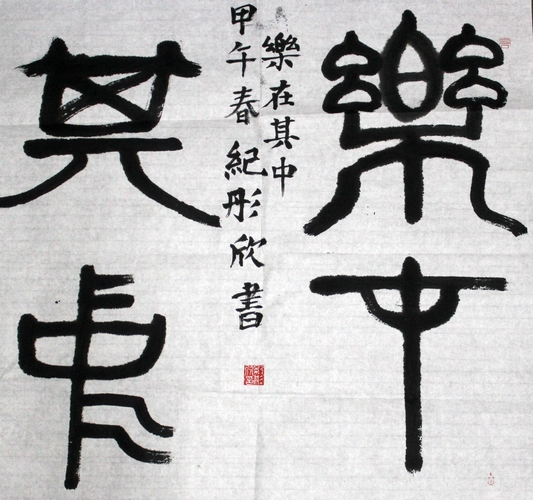 樂在
其中
樂在其中
甲午春紀彤欣書